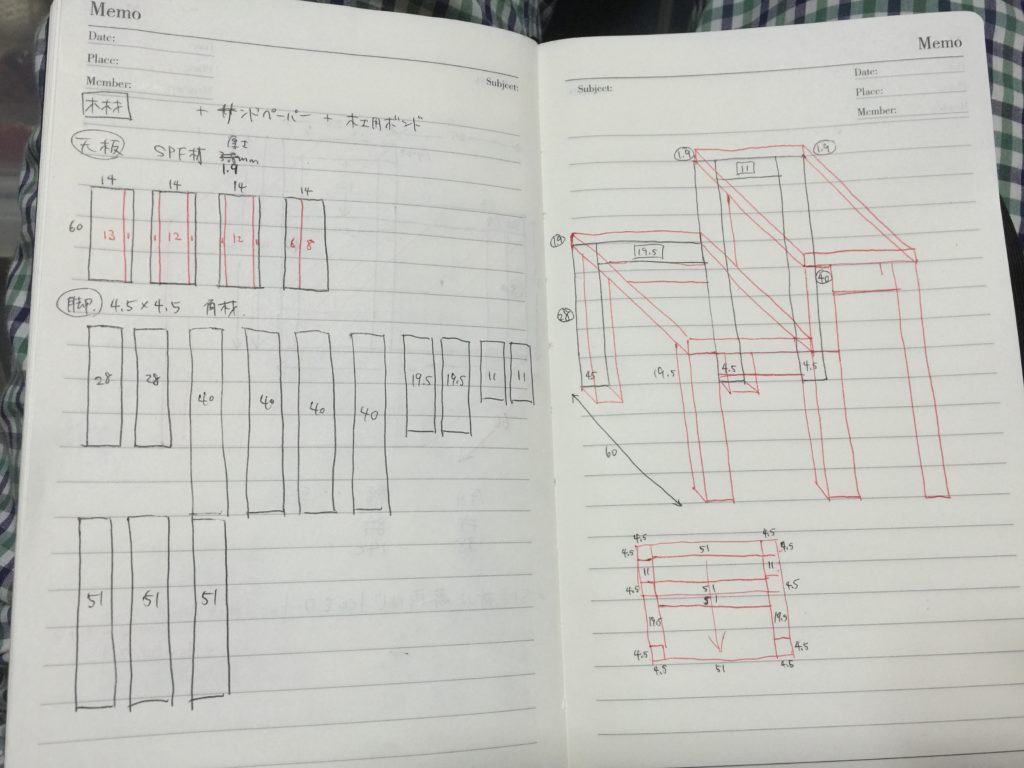 Memo
Date:
Place:
Member:
Subject:
木材 + サンドペーパー + 木工用ボンド
天板 SPF材 厚さ mm
1.9
14 14 14 14
60 13 1 1 12 1 1 12 1 6 8
脚 4.5×4.5 角材
28 28 40 40 40 40 19.5 19.5 11 11
51 51 51
Memo
Subject:
Date:
Place:
Member:
1.9 1.9
11
19 19.5
40
28
45 19.5 4.5 4.5
60
4.5 4.5
4.5 51 4.5
11 11
4.5 51 4.5
51
19.5 19.5
4.5 4.5
4.5 51 4.5